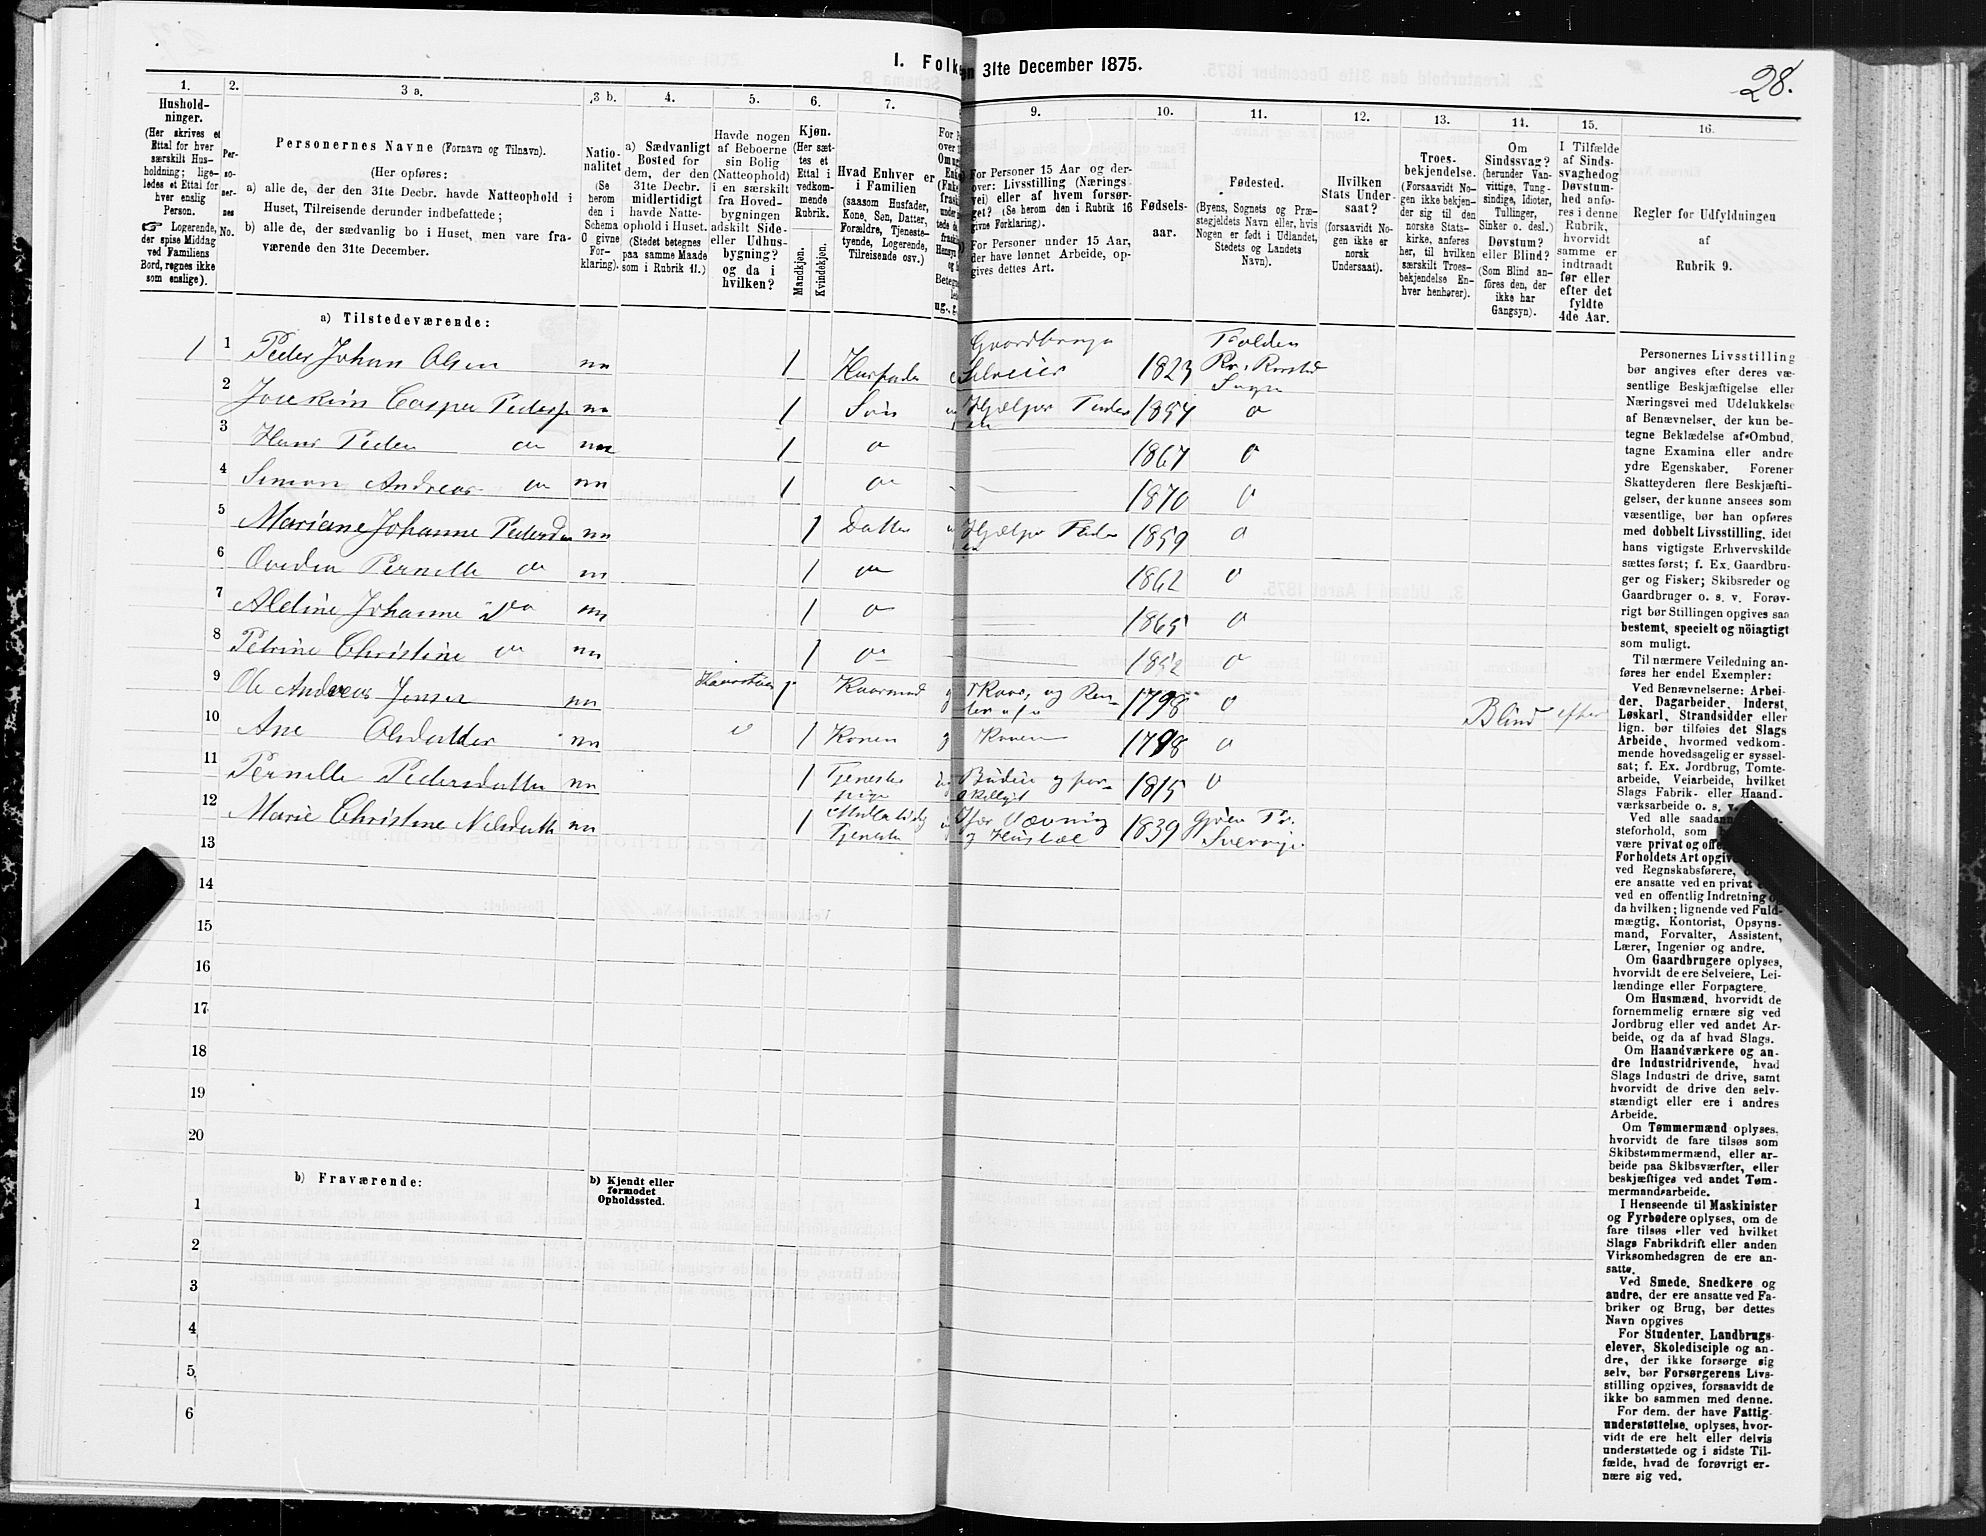 28.
1. Folke
31te December 1875.
1.
Hushold-
ninger.
(Her skrives et
Ettal for hver
særskilt Hus-
holdning; lige-
ledes et Ettal for
hver enslig
Person.
☞ Logerende,
der spise Middag
ved Familiens
Bord, regnes ikke
som enslige).
2.
Per-
so-
ner-
nes
No.
3 a.
Personernes Navne (Fornavn og Tilnavn).
(Her opføres:
a) alle de, der den 31te Decbr. havde Natteophold i
Huset, Tilreisende derunder indbefattede;
b) alle de, der sædvanlig bo i Huset, men vare fra-
værende den 31te December.
3 b.
Natio-
nalitet
(Se
herom
den i
Schema
O givne
For-
klaring).
4.
a) Sædvanligt
Bosted for
dem, der den
31te Decbr.
midlertidigt
havde Natte-
ophold i Huset.
(Stedet betegnes
paa samme Maade
som i Rubrik 11.)
5.
Havde nogen
af Beboerne
sin Bolig
(Natteophold)
i en særskilt
fra Hoved-
bygningen
adskilt Side-
eller Udhus-
bygning?
og da i
hvilken?
6.
Kjøn.
(Her sæt-
tes et
Ettal i
vedkom-
mende
Rubrik.
Mandkjøn.
Kvindekjøn.
7.
Hvad Enhver er
i Familien
(saasom Husfader,
Kone, Søn, Datter,
Forældre, Tjeneste-
tyende, Logerende,
Tilreisende osv.)
9.
For Personer 15 Aar og der-
over: Livsstilling (Nærings-
vei) eller af hvem forsør-
get? (Se herom den i Rubrik 16
givne Forklaring).
For Personer under 15 Aar,
der have lønnet Arbeide, op-
gives dettes Art.
10.
Fødsels-
aar.
11.
Fødested.
(Byens, Sognets og Præ-
stegjeldets Navn eller, hvis
Nogen er født i Udlandet,
Stedets og Landets
Navn).
12.
Hvilken
Stats Under-
saat?
(forsaavidt No-
gen ikke er
norsk
Undersaat).
13.
Troes-
bekjendelse.
(Forsaavidt No-
gen ikke bekjen-
der sig til den
norske Stats-
kirke, anføres
her, til hvilken
særskilt Troes-
bekjendelse En-
hver henhører).
14.
Om
Sindssvag?
(herunder Van-
vittige, Tung-
sindige, Idioter,
Tullinger,
Sinker o. desl.)
Døvstum?
eller Blind?
(Som Blind an-
föres den, der
ikke har
Gangsyn).
15.
I Tilfælde
af Sinds-
svaghed og
Døvstum-
hed anfø-
res i denne
Rubrik,
hvorvidt
samme er
indtraadt
før eller
efter det
fyldte
4de Aar.
16.
Regler for Udfyldningen
af
Rubrik 9.
a) Tilstedeværende:
1 1 Peder Johan Olsen nn 1 Husfader Gaardbruger Selveier 1823 Folden Pr. Rørstad Sogn
2 Joackim Casper Peders. nn 1 Søn Hjælper Faderen 1854 o
3 Hans Peder do nn 1 o 1867 o
4 Simon Andreas do nn 1 do 1870 o
5 Mariane Johanne Pedersd. nn 1 Datter Hjælper Faderen 1859 o
6 Pernille do nn 1 do 1862 o
7 Aldine Johanne do nn 1 o 1865 o
8 Petrine Christine do nn 1 do 1852 o
9 Ole Andreas Jensen nn 1 Kaarmand g 1798 o Blind efter
10 Ane Olsdatter nn 1 Konen g Konen 1798 o
11 Pernille Pedersdatter nn 1 Tjeneste pige Budeie og 1815 o
12 Marie Christine Nilsdatter nn 1 Midlertidig Tjeneste Vævning og Husstel 1839 Sverrige
13
14
15
16
17
18
19
20
b) Fraværende:
b) Kjendt eller
formodet
Opholdssted.
1
2
3
4
5
6
Personernes Livsstilling
bør angives efter deres væ-
sentlige Beskjæftigelse eller
Næringsvei med Udelukkelse
af Benævnelser, der kun be-
tegne Beklædelse af Ombud,
tagne Examina eller andre
ydre Egenskaber. Forener
Skatteyderen flere Beskjæfti-
gelser, der kunne ansees som
væsentlige, bør han opføres
med dobbelt Livsstilling, idet
hans vigtigste Erhvervskilde
sættes først; f. Ex. Gaardbru-
ger og Fisker; Skibsreder og
Gaardbruger o. s. v. Forøv-
rigt bør Stillingen opgives saa
bestemt, specielt og nöiagtigt
som muligt.
Til nærmere Veiledning an-
føres her endel Exempler:
Ved Benævnelserne: Arbei-
der, Dagarbeider, Inderst,
Løskarl, Strandsidder eller
lign. bør tilføies det Slags
Arbeide, hvormed vedkom-
mende hovedsagelig er syssel-
sat; f. Ex. Jordbrug, Tomte-
arbeide, Veiarbeide, hvilket
Slags Fabrik- eller Haand-
værksarbeide o. s. v.
Ved alle saadan
steforhold, som
være privat og off
Forholdets Art opgiv
ved Regnskabsførere,
ere ansatte ved en privat
ved en offentlig Indretning
da hvilken; lignende ved Fuld-
mægtig, Kontorist, Opsyns-
mand, Forvalter, Assistent,
Lærer, Ingeniør og andre.
Om Gaardbrugere oplyses,
hvorvidt de ere Selveiere, Lei-
lændinge eller Forpagtere.
Om Husmænd, hvorvidt de
fornemmelig ernære sig ved
Jordbrug eller ved andet Ar-
beide, og da af hvad Slags.
Om Haandværkere og an-
dre Industridrivende, hvad
Slags Industri de drive, samt
hvorvidt de drive den selv-
stændigt eller ere i andres
Arbeide.
Om Tømmermænd oplyses,
hvorvidt de fare tilsøs som
Skibstømmermænd, eller ar-
beide paa Skibsværfter, eller
beskjæftiges ved andet Tøm-
mermandsarbeide.
I Henseende til Maskinister
og Fyrbødere oplyses, om de
fare tilsøs eller ved hvilket
Slags Fabrikdrift eller anden
Virksomhedsgren de ere an-
satte.
Ved Smede, Snedkere og
andre, der ere ansatte ved Fa-
briker og Brug, bør dettes
Navn opgives
For Studenter, Landbrugs-
elever, Skoledisciple og an-
dre, der ikke forsørge sig
selv, bør Forsørgerens Livs-
stilling opgives, forsaavidt de
ikke bo sammen med denne.
For dem, der have Fattig-
understøttelse, oplyses, hvor-
vidt de ere helt eller delvis
understøttede og i sidste Til-
fælde, hvad de forøvrigt er-
nære sig ved.